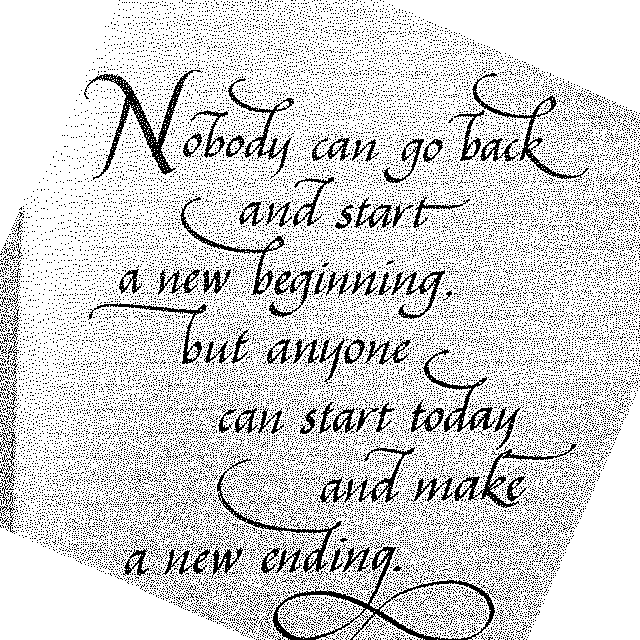 Nobody can go back
and start
a new beginning.
but anyone
can start today
and make
a new ending.